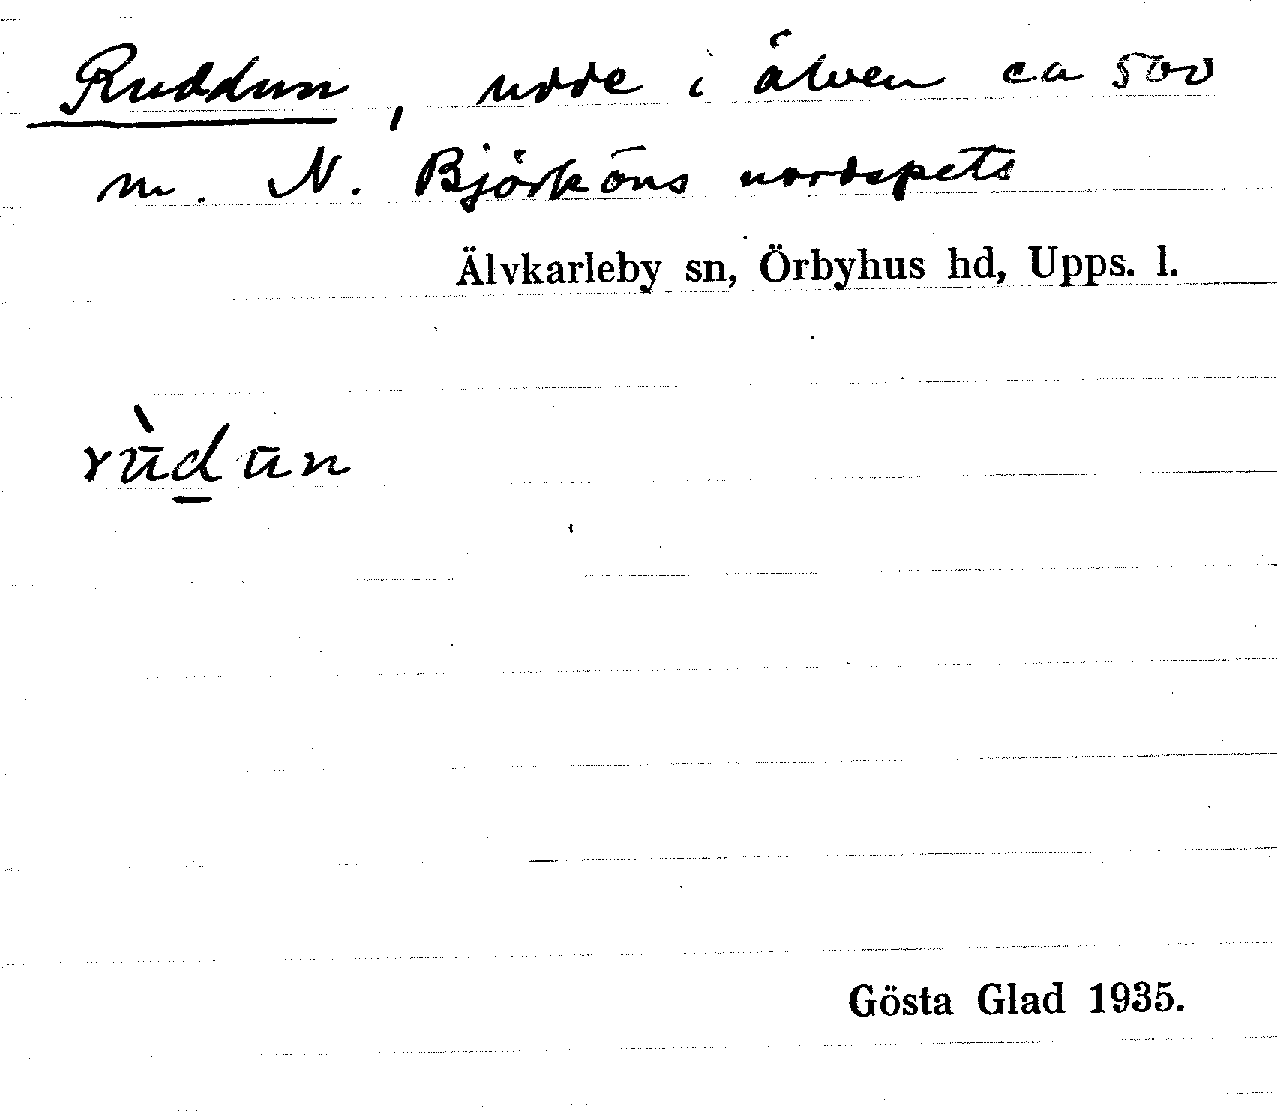 Ruddun, udde i älven ca 500
m. N. Björköns nordspets
Älvkarleby sn, Örbyhus hd, Upps. l.
rùd̠un
Gösta Glad 1935.